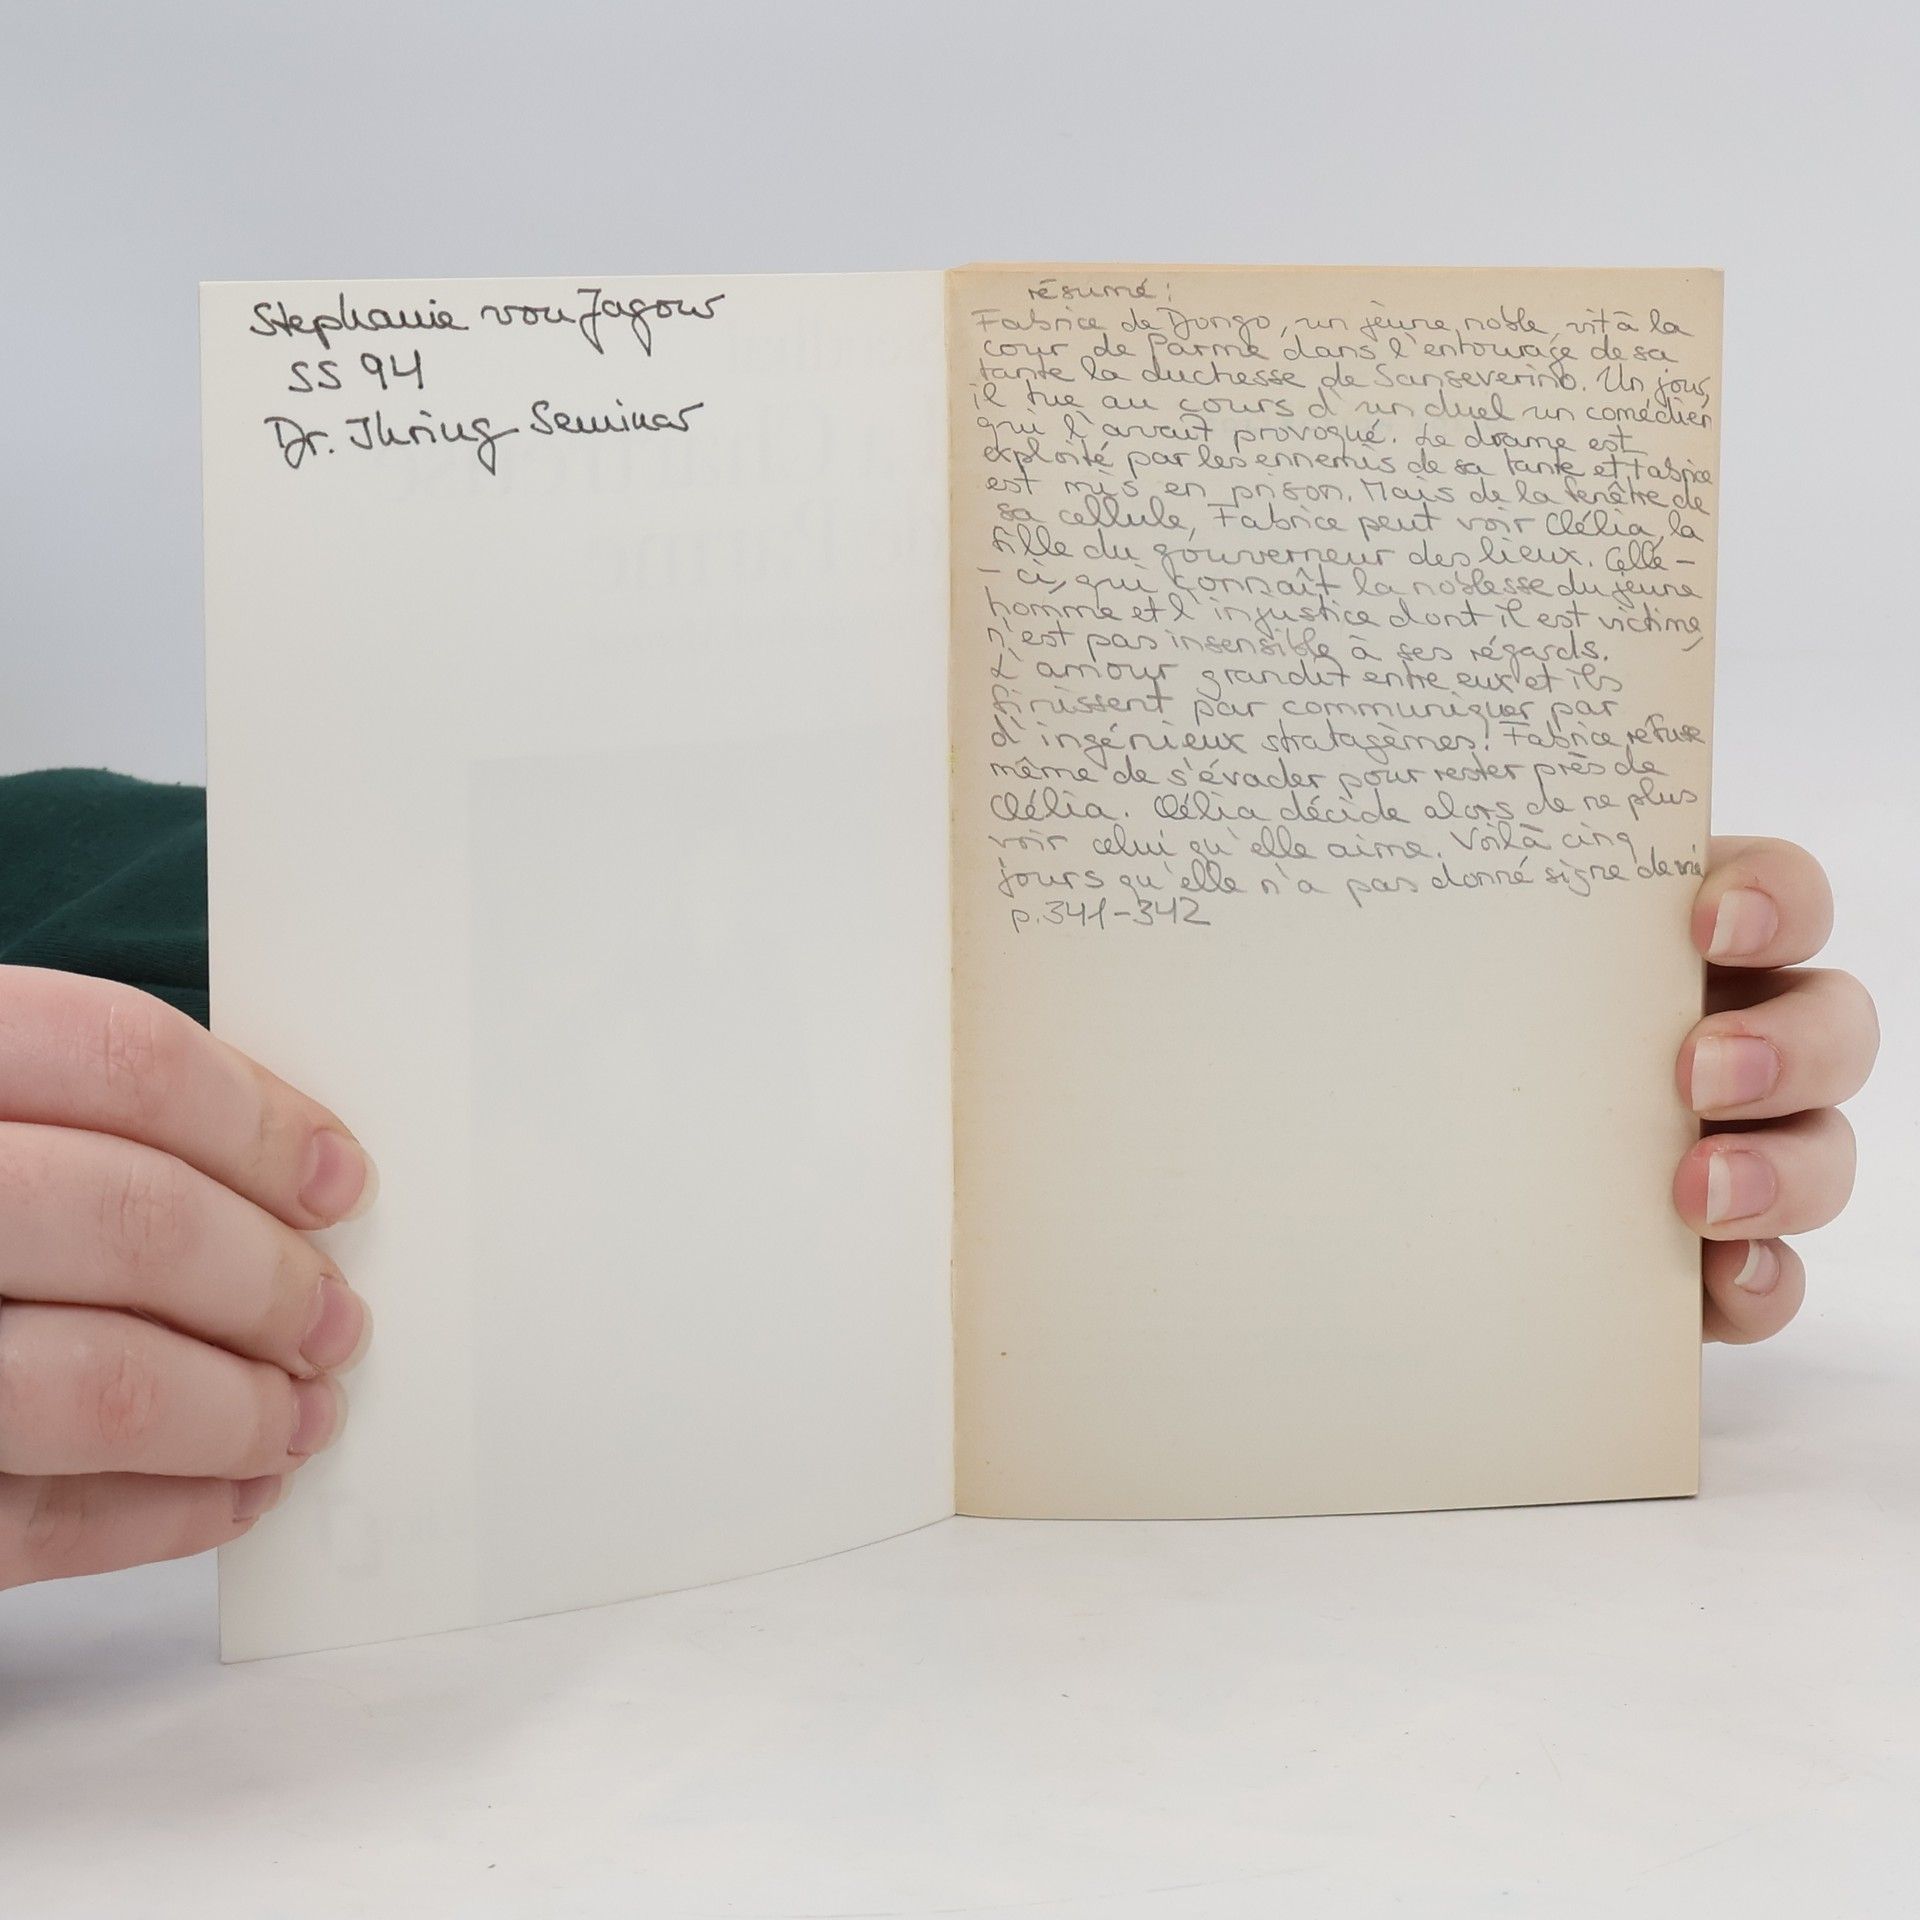 Stephanie von Jagow
SS 94
Dr. Ihring Seminar
résumé:
Fabrice de Dongo, un jeune noble, vit à la
cour de Parme dans l'entourage de sa
tante la duchesse de Sanseverino. Un jour,
il tue au cours d'un duel un comédien
qui l'avait provoqué. Le drame est
exploité par les ennemis de sa tante et Fabrice
est mis en prison. Mais de la fenêtre de
sa cellule, Fabrice peut voir Clélia, la
fille du gouverneur des lieux. Celle-
-ci, qui connaît la noblesse du jeune
homme et l'injustice dont il est victime,
n'est pas insensible à ses régards.
L'amour grandit entre eux et ils
finissent par communiquer par
d'ingénieux stratagèmes! Fabrice refuse
même de s'évader pour rester près de
Clélia. Clélia décide alors de ne plus
voir celui qu'elle aime. Voilà cinq
jours qu'elle n'a pas donné signe de vie
p. 341-342